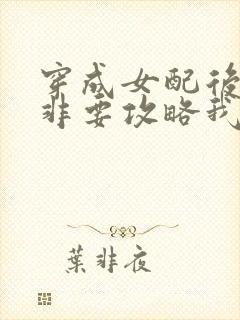 穿成女配後
非要攻略我
葉非夜